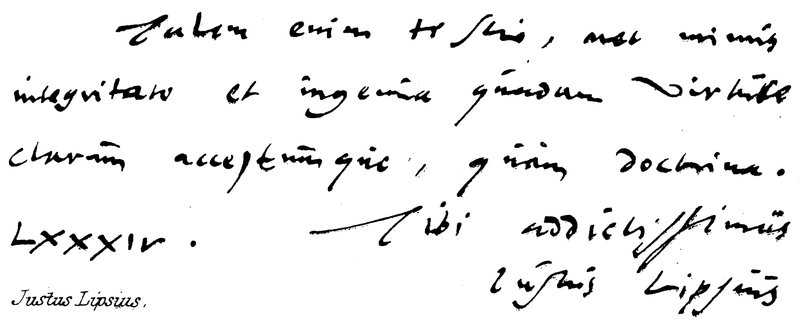 Talem enim te scio, nec minus
integritate et ingenua quadam virtute
clarum acceptumque, quam doctrina.
LXXXIV. Tibi addictissimus
Iustus Lipsius
Justus Lipsius.